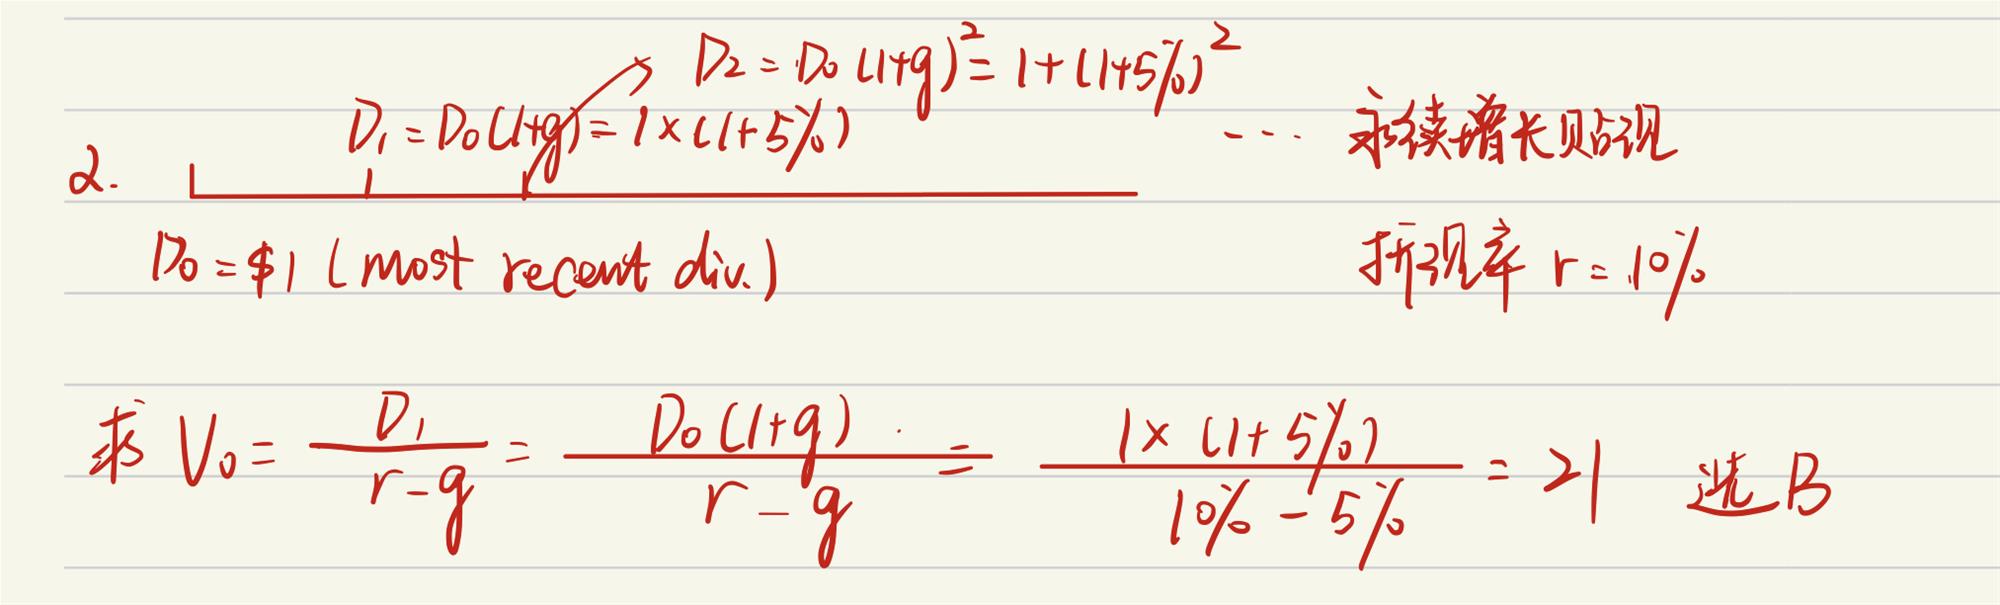 D₂ = D₀ (1+g)² = 1 + (1+5%)²
D₁ = D₀(1+g) = 1 × (1+5%) --- 永续增长贴现
2.
D₀ = $1 (most recent div.) 折现率 r = 10%
求 V₀ = D₁ / r - g = D₀ (1+g) / r - g = 1 × (1+5%) / 10% - 5% = 21 选 B